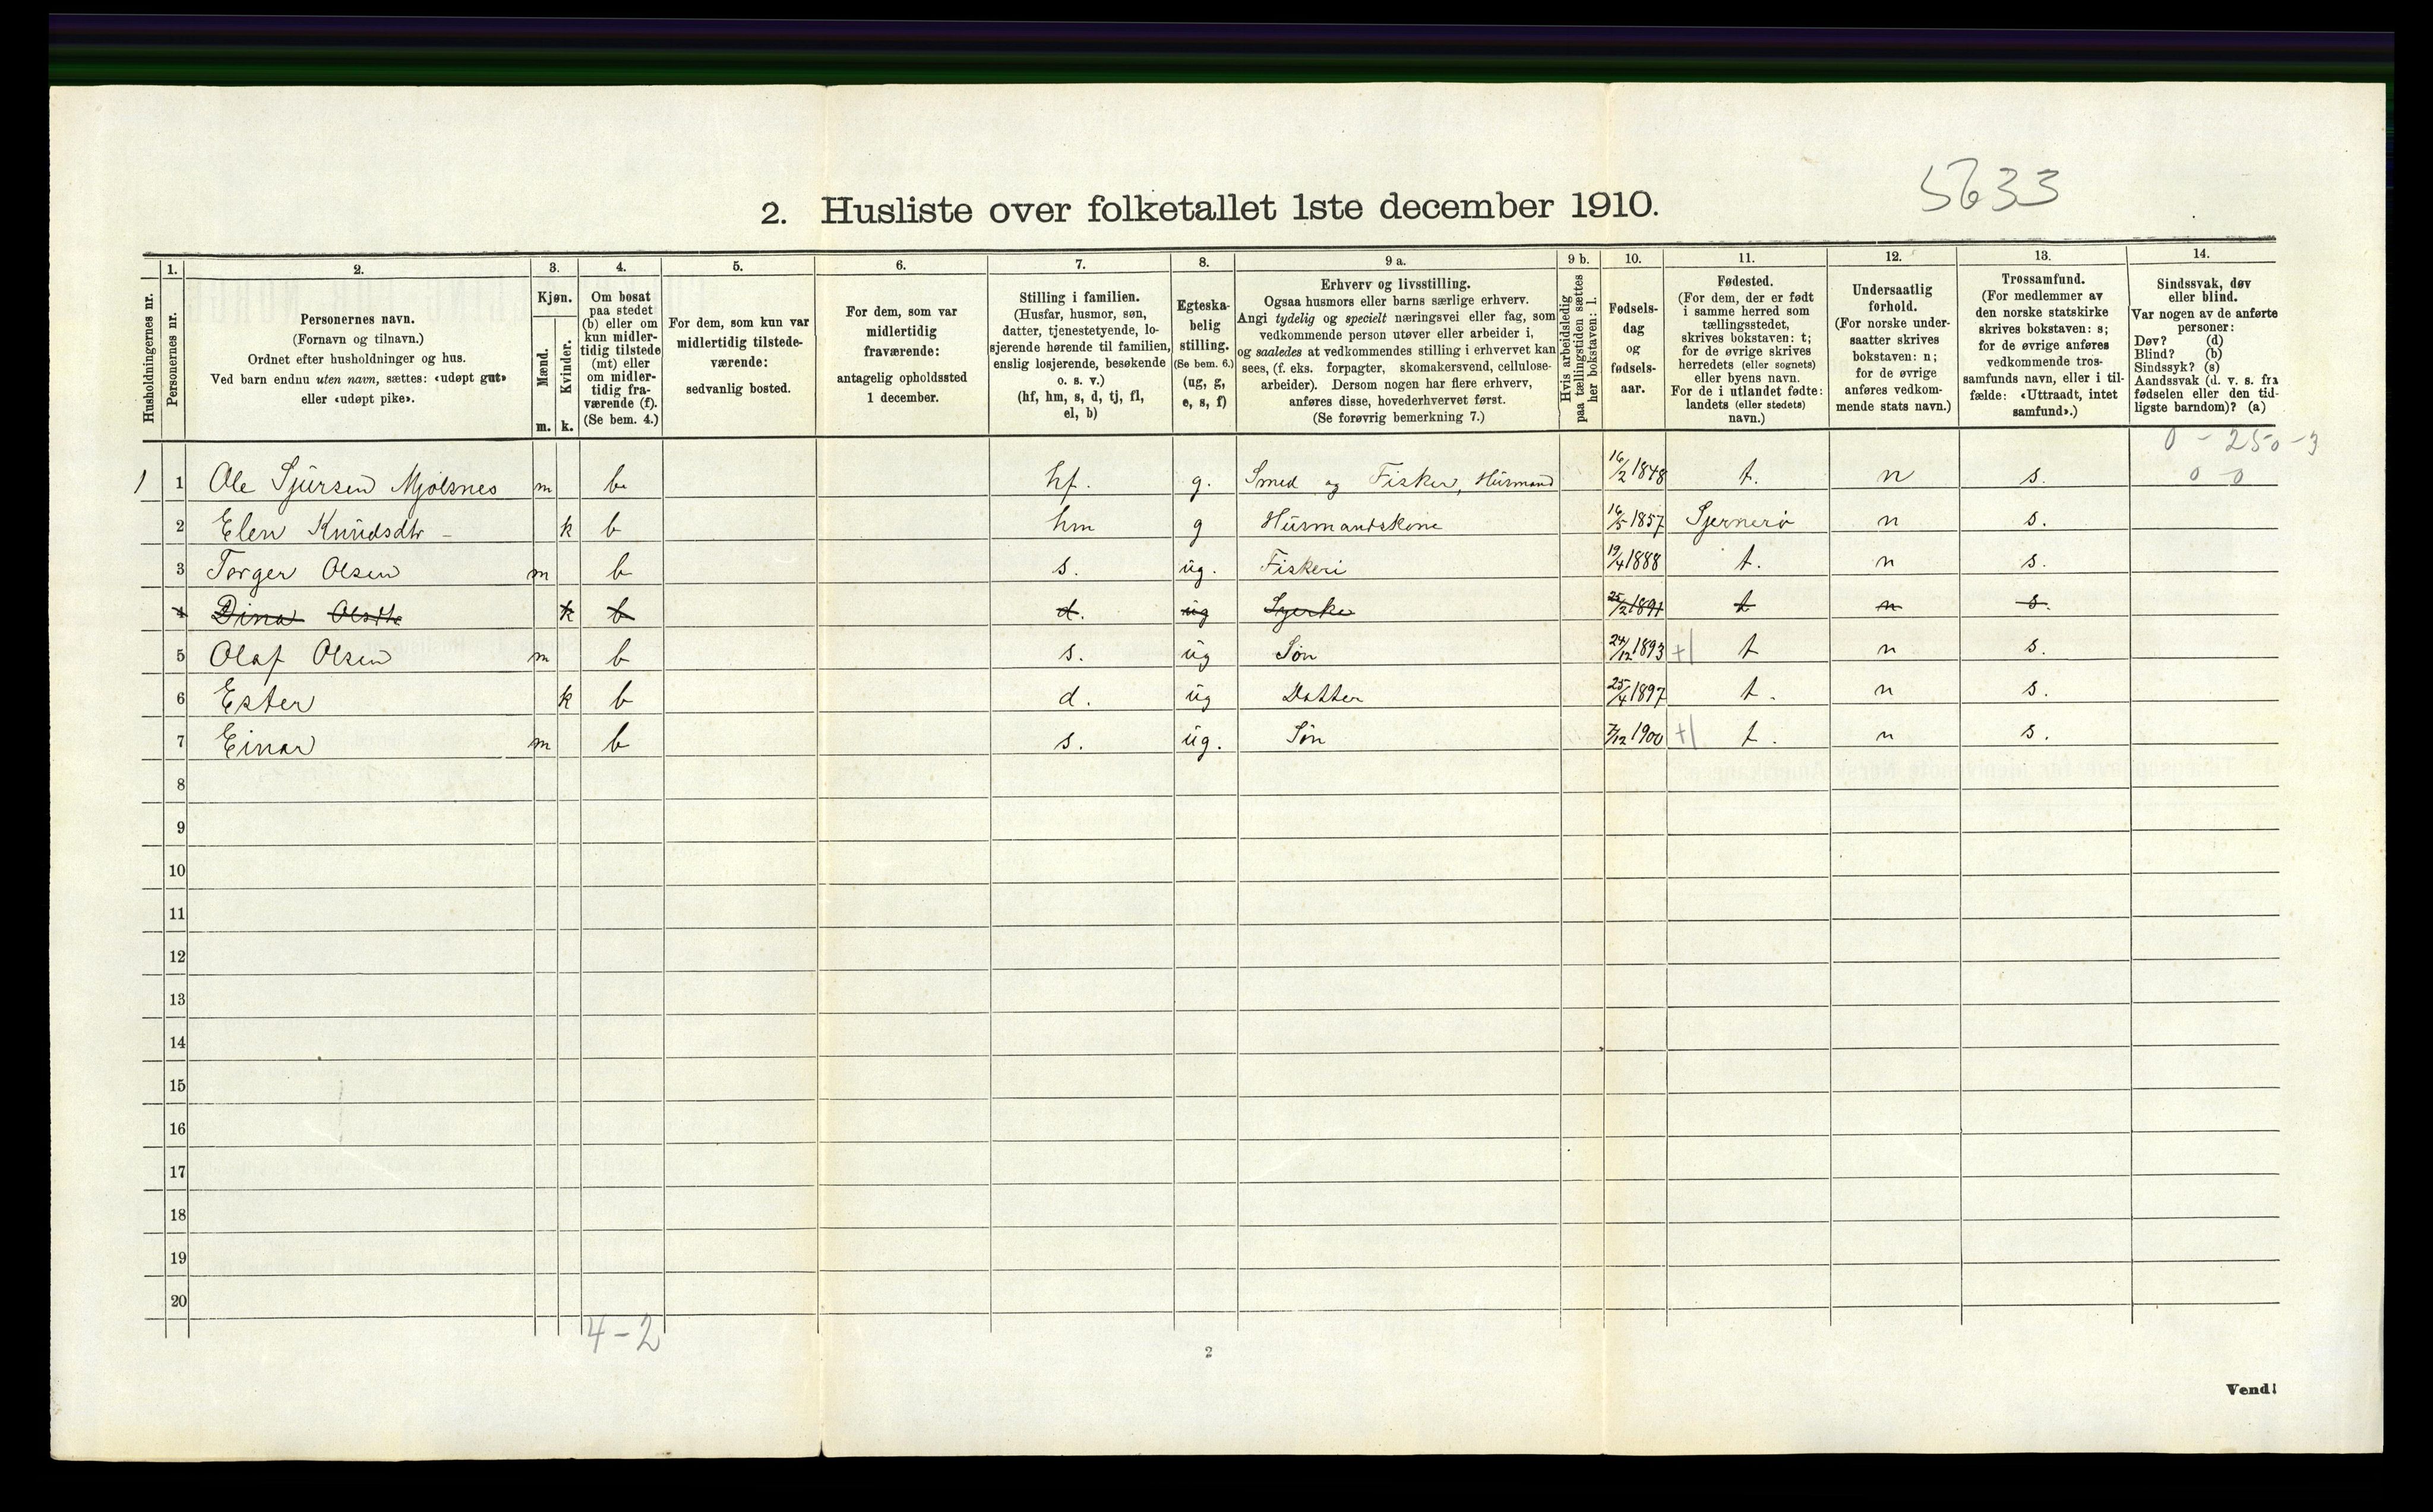 5633
2. Husliste over folketallet 1ste december 1910.
Husholdningernes nr.
1. Personernes nr.
2. Personernes navn.
(Fornavn og tilnavn.)
Ordnet efter husholdninger og hus.
Ved barn endnu uten navn, sættes: «udøpt gut»
eller «udøpt pike».
3. Kjøn.
Mænd. m.
Kvinder. k.
4. Om bosat
paa stedet
(b) eller om
kun midler-
tidig tilstede
(mt) eller
om midler-
tidig fra-
værende (f).
(Se bem. 4.)
5. For dem, som kun var
midlertidig tilstede-
værende:
sedvanlig bosted.
6. For dem, som var
midlertidig
fraværende:
antagelig opholdssted
1 december.
7. Stilling i familien.
(Husfar, husmor, søn,
datter, tjenestetyende, lo-
sjerende hørende til familien,
enslig losjerende, besøkende
o. s. v.)
(hf, hm, s, d, tj, fl,
el, b)
8. Egteska-
belig
stilling.
(Se bem. 6.)
(ug, g,
e, s, f)
9 a. Erhverv og livsstilling.
Ogsaa husmors eller barns særlige erhverv.
Angi tydelig og specielt næringsvei eller fag, som
vedkommende person utøver eller arbeider i,
og saaledes at vedkommendes stilling i erhvervet kan
sees, (f. eks. forpagter, skomakersvend, cellulose-
arbeider). Dersom nogen har flere erhverv,
anføres disse, hovederhvervet først.
(Se forøvrig bemerkning 7.)
9 b. Hvis arbeidsledig
paa tællingstiden sættes
her bokstaven: l.
10. Fødsels-
dag
og
fødsels-
aar.
11. Fødested.
(For dem, der er født
i samme herred som
tællingsstedet,
skrives bokstaven: t;
for de øvrige skrives
herredets (eller sognets)
eller byens navn.
For de i utlandet fødte:
landets (eller stedets)
navn.)
12. Undersaatlig
forhold.
(For norske under-
saatter skrives
bokstaven: n;
for de øvrige
anføres vedkom-
mende stats navn.)
13. Trossamfund.
(For medlemmer av
den norske statskirke
skrives bokstaven: s;
for de øvrige anføres
vedkommende tros-
samfunds navn, eller i til-
fælde: «Uttraadt, intet
samfund».)
14. Sindssvak, døv
eller blind.
Var nogen av de anførte
personer:
Døv? (d)
Blind? (b)
Sindssyk? (s)
Aandssvak (d. v. s. fra
fødselen eller den tid-
ligste barndom)? (a)
0 - 250 - 3
0 0
1 1 Ole Sjursen Mjølsnes m b hf. g. Smed og Fisker, Husmand 16/2 1848 t. n s.
2 Elen Knudsdtr - k b hm g Husmandskone 16/5 1857 Sjernerø n s.
3 Torger Olsen m b s. ug. Fiskeri 19/4 1888 t. n s.
4 Dina Olsdtr k b d. ug Syerke 25/2 1891 t n s.
5 Olaf Olsen m b s. ug Søn 24/12 1893 +| t n s.
6 Ester k b d. ug Datter 25/4 1897 t. n s.
7 Einar m b s. ug. Søn 7/12 1900 +| t. n s.
8
9
10
11
12
13
14
15
16
17
18
19
20
4 - 2
2
Vend!